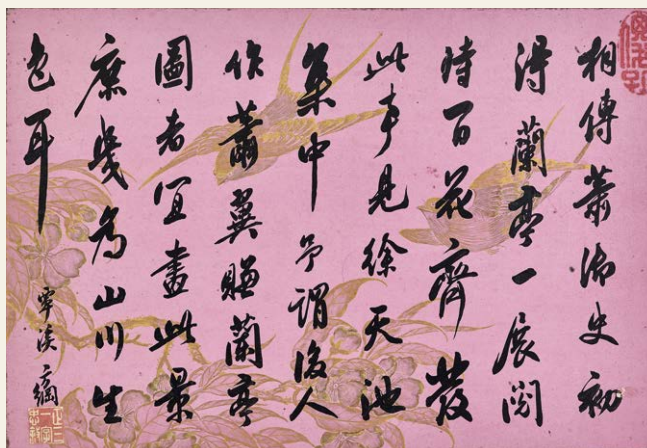 相傳蕭御史初
得蘭亭一展閱
時百花齊發
此事見徐天池
集中予謂後人
作蕭翼賺蘭亭
圖者宜畫此景
庶幾為山川生
色耳
覃溪方綱
正三一字忠敘